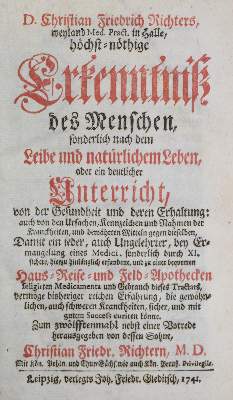 D. Christian Friedrich Richters,
weyland Med. Pract. in Halle,
höchst-nöthige
Erkenntniß
des Menschen,
sonderlich nach dem
Leibe und natürlichem Leben,
oder ein deutlicher
Unterricht,
von der Gesundheit und deren Erhaltung:
auch von den Ursachen, Kennzeichen und Nahmen der
Kranckheiten, und bewährten Mitteln gegen dieselben,
Damit ein ieder, auch Ungelehrter, bey Er-
mangelung eines Medici, sonderlich durch XI.
sichere, hierzu hinlänglich erfundene, und zu einer bequemen
Haus-Reise-und Feld-Apothecken
selegirten Medicamenta und Gebrauch dieses Tractats,
vermöge bisheriger reichen Erfahrung, die gewöhn-
lichen, auch schweren Kranckheiten, sicher, und mit
gutem Success curiren könne.
Zum zwölfftenmahl nebst einer Vorrede
herausgegeben von dessen Sohne,
Christian Friedr. Richtern, M. D.
Mit Kön. Pohln. und Chur-Sächs. wie auch Kön. Preuß. Privilegiis.
Leipzig, verlegts Joh. Friedr. Gleditsch, 1741.